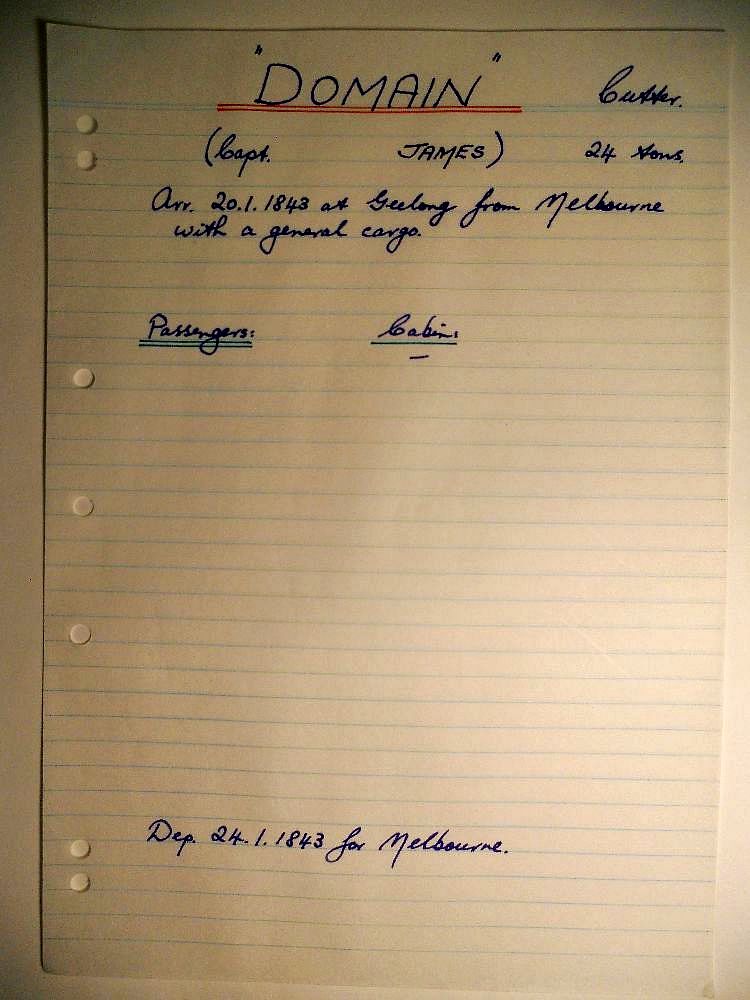 "DOMAIN" Cutter.
(Capt. JAMES) 24 tons.
Arr. 20.1.1843 at Geelong from Melbourne
with a general cargo.
Passengers: Cabin:
—
Dep. 24.1.1843 for Melbourne.